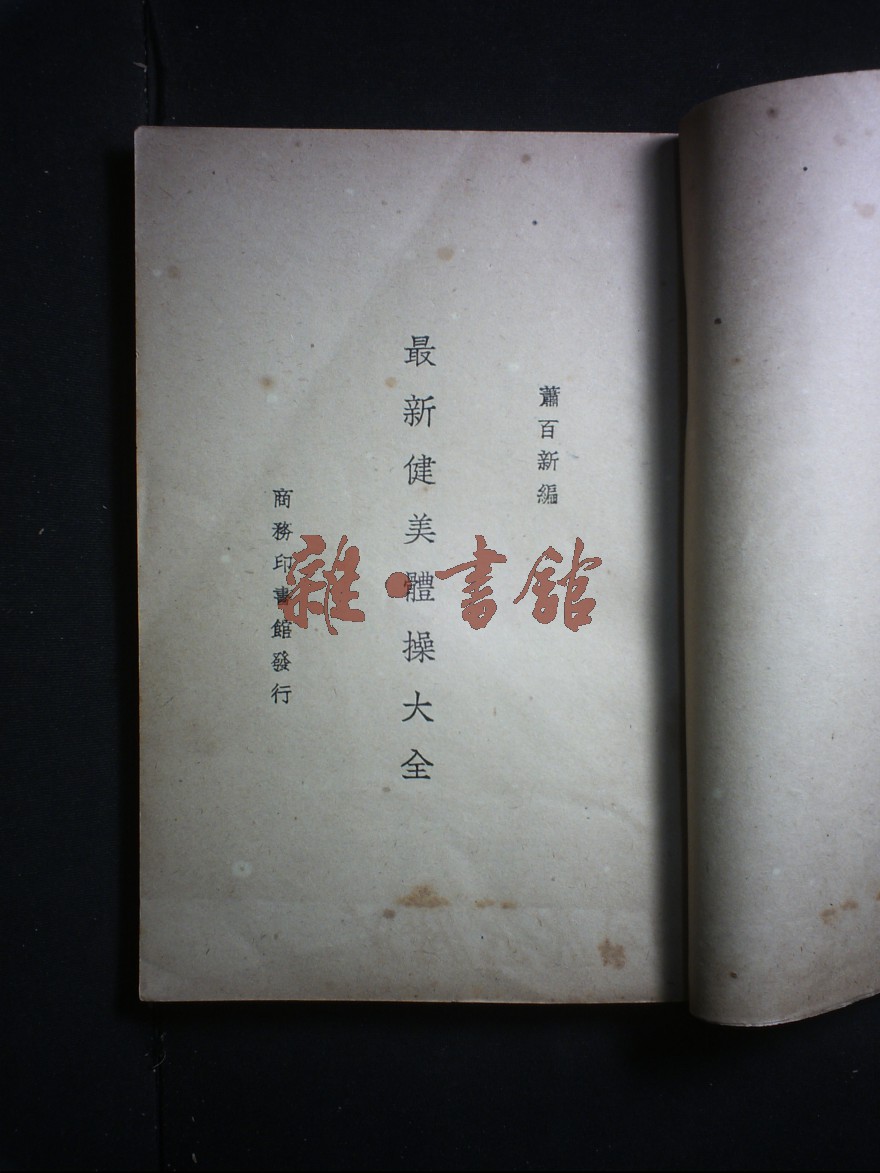 蕭百新編
最新健美體操大全
商務印書館發行
雜·書館